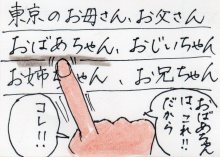 東京のお母さん、お父さん
おばあちゃん、おじいちゃん
お姉ちゃん、お兄ちゃん
おばあちゃん
は、これ!!
だから
コレ!!